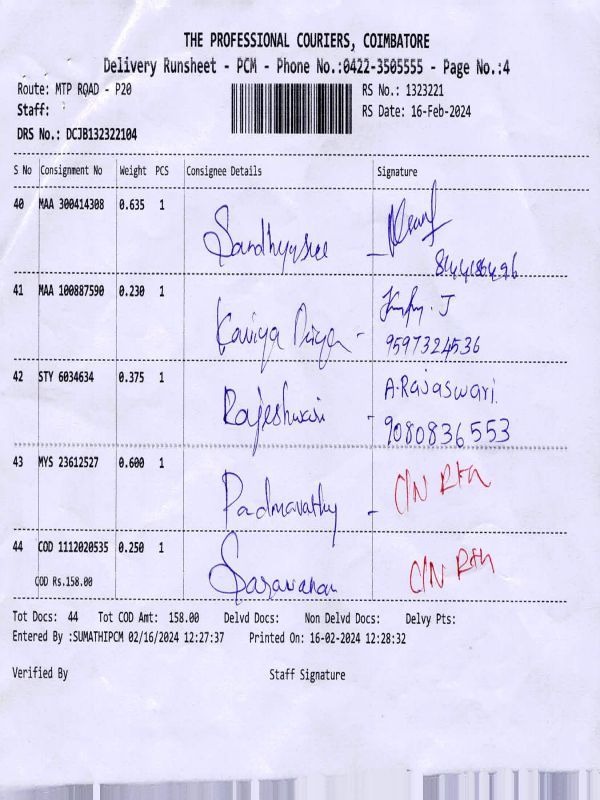 THE PROFESSIONAL COURIERS, COIMBATORE
Delivery Runsheet - PCM - Phone No.:0422-3505555 - Page No.:4
Route: MTP ROAD - P20 RS No.: 1323221
Staff: RS Date: 16-Feb-2024
DRS No.: DCJB132322104
S No Consignment No Weight PCS Consignee Details Signature
40 MAA 300414308 0.635 1
Sandhyasree -
41 MAA 100887590 0.230 1
Kaviya Priya - J
9597324536
42 STY 6034634 0.375 1 A.Rajaswari.
Rajeshwari - 9080836553
43 MYS 23612527 0.600 1 C/N RTN
Padmavathy -
44 COD 1112020535 0.250 1 C/N RTN
COD Rs.158.00 Saravanan
Tot Docs: 44 Tot COD Amt: 158.00 Delvd Docs: Non Delvd Docs: Delvy Pts:
Entered By :SUMATHIPCM 02/16/2024 12:27:37 Printed On: 16-02-2024 12:28:32
Verified By Staff Signature